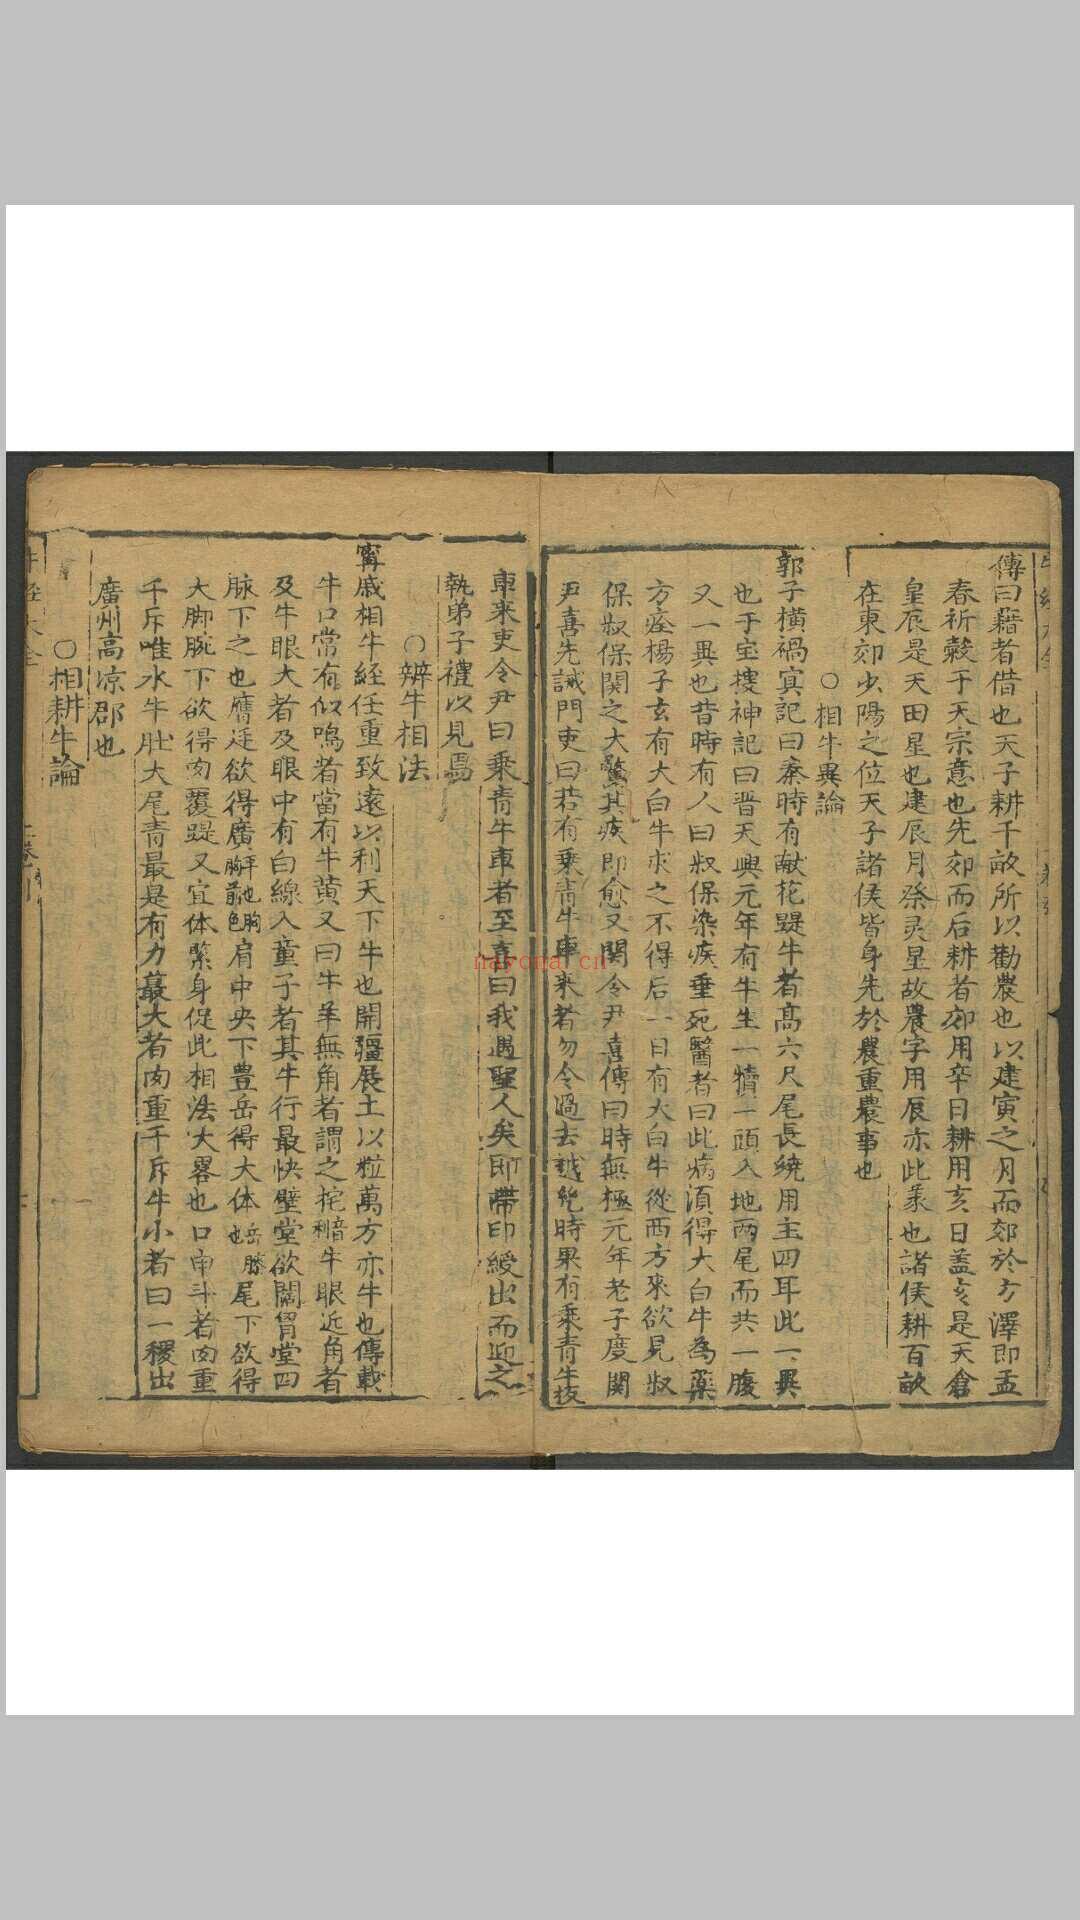 傳曰藉者借也天子耕千畝所以勸農也以建寅之月而郊於方澤即孟
春祈穀于天宗意也先郊而后耕者郊用辛日耕用亥日盖亥是天倉
皇辰是天田星也建辰月祭灵星故農字用辰亦此彖也諸侯耕百畝
在東郊少陽之位天子諸侯皆身先於農重農事也
○相牛異論
郭子橫禍㝠記曰秦時有献花蹄牛者高六尺尾長繞用主四耳此一異
也于宝搜神記曰晋天興元年有牛生一犢一頭入地两尾而共一腹
又一異也昔時有人曰叔保染疾垂死醫者曰此病須得大白牛為藥
方痊楊子玄有大白牛求之不得后一日有大白牛從西方來欲見叔
保叔保関之大驚其疾即愈又関令尹喜傳曰時無極元年老子度関
尹喜先誡門吏曰若有乗青牛車來者勿令過去越児時果有乗青牛板
車来吏令尹曰乗青牛車者至喜曰我遇聖人矣即帶印綬出而迎之
執弟子禮以見焉
○辨牛相法
寗戚相牛経任重致遠以利天下牛也開疆展土以粒萬方亦牛也傳載
牛口常有似鳴者當有牛黄又曰牛羊無角者謂之㸰音𤚥牛眼近角者
及牛眼大者及眼中有白線入童子者其牛行最快壁堂欲闊胷堂四
脉下之也膺逹欲得廣坪也胸胸前色肩中央下豊岳得大体岳膝也尾下欲得
大脚腕下欲得肉覆蹄又宜体緊身促此相法大畧也口串斗者肉重
千斥唯水牛肚大尾青最是有力最大者肉重千斥牛小者曰一稷出
廣州高凉郡也
○相耕牛論
nayona.cn